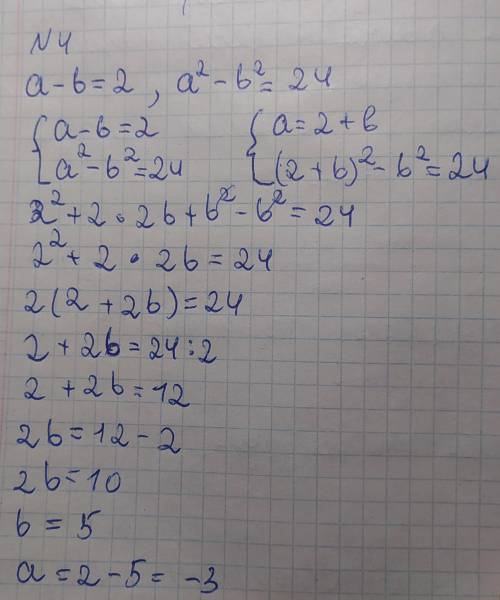 N4
a-b=2, a²-b²=24
{a-b=2 {a=2+b
{a²-b²=24 {(2+b)²-b²=24
2²+2·2b+b²-b²=24
2²+2·2b=24
2(2+2b)=24
2+2b=24:2
2+2b=12
2b=12-2
2b=10
b=5
a=2-5=-3